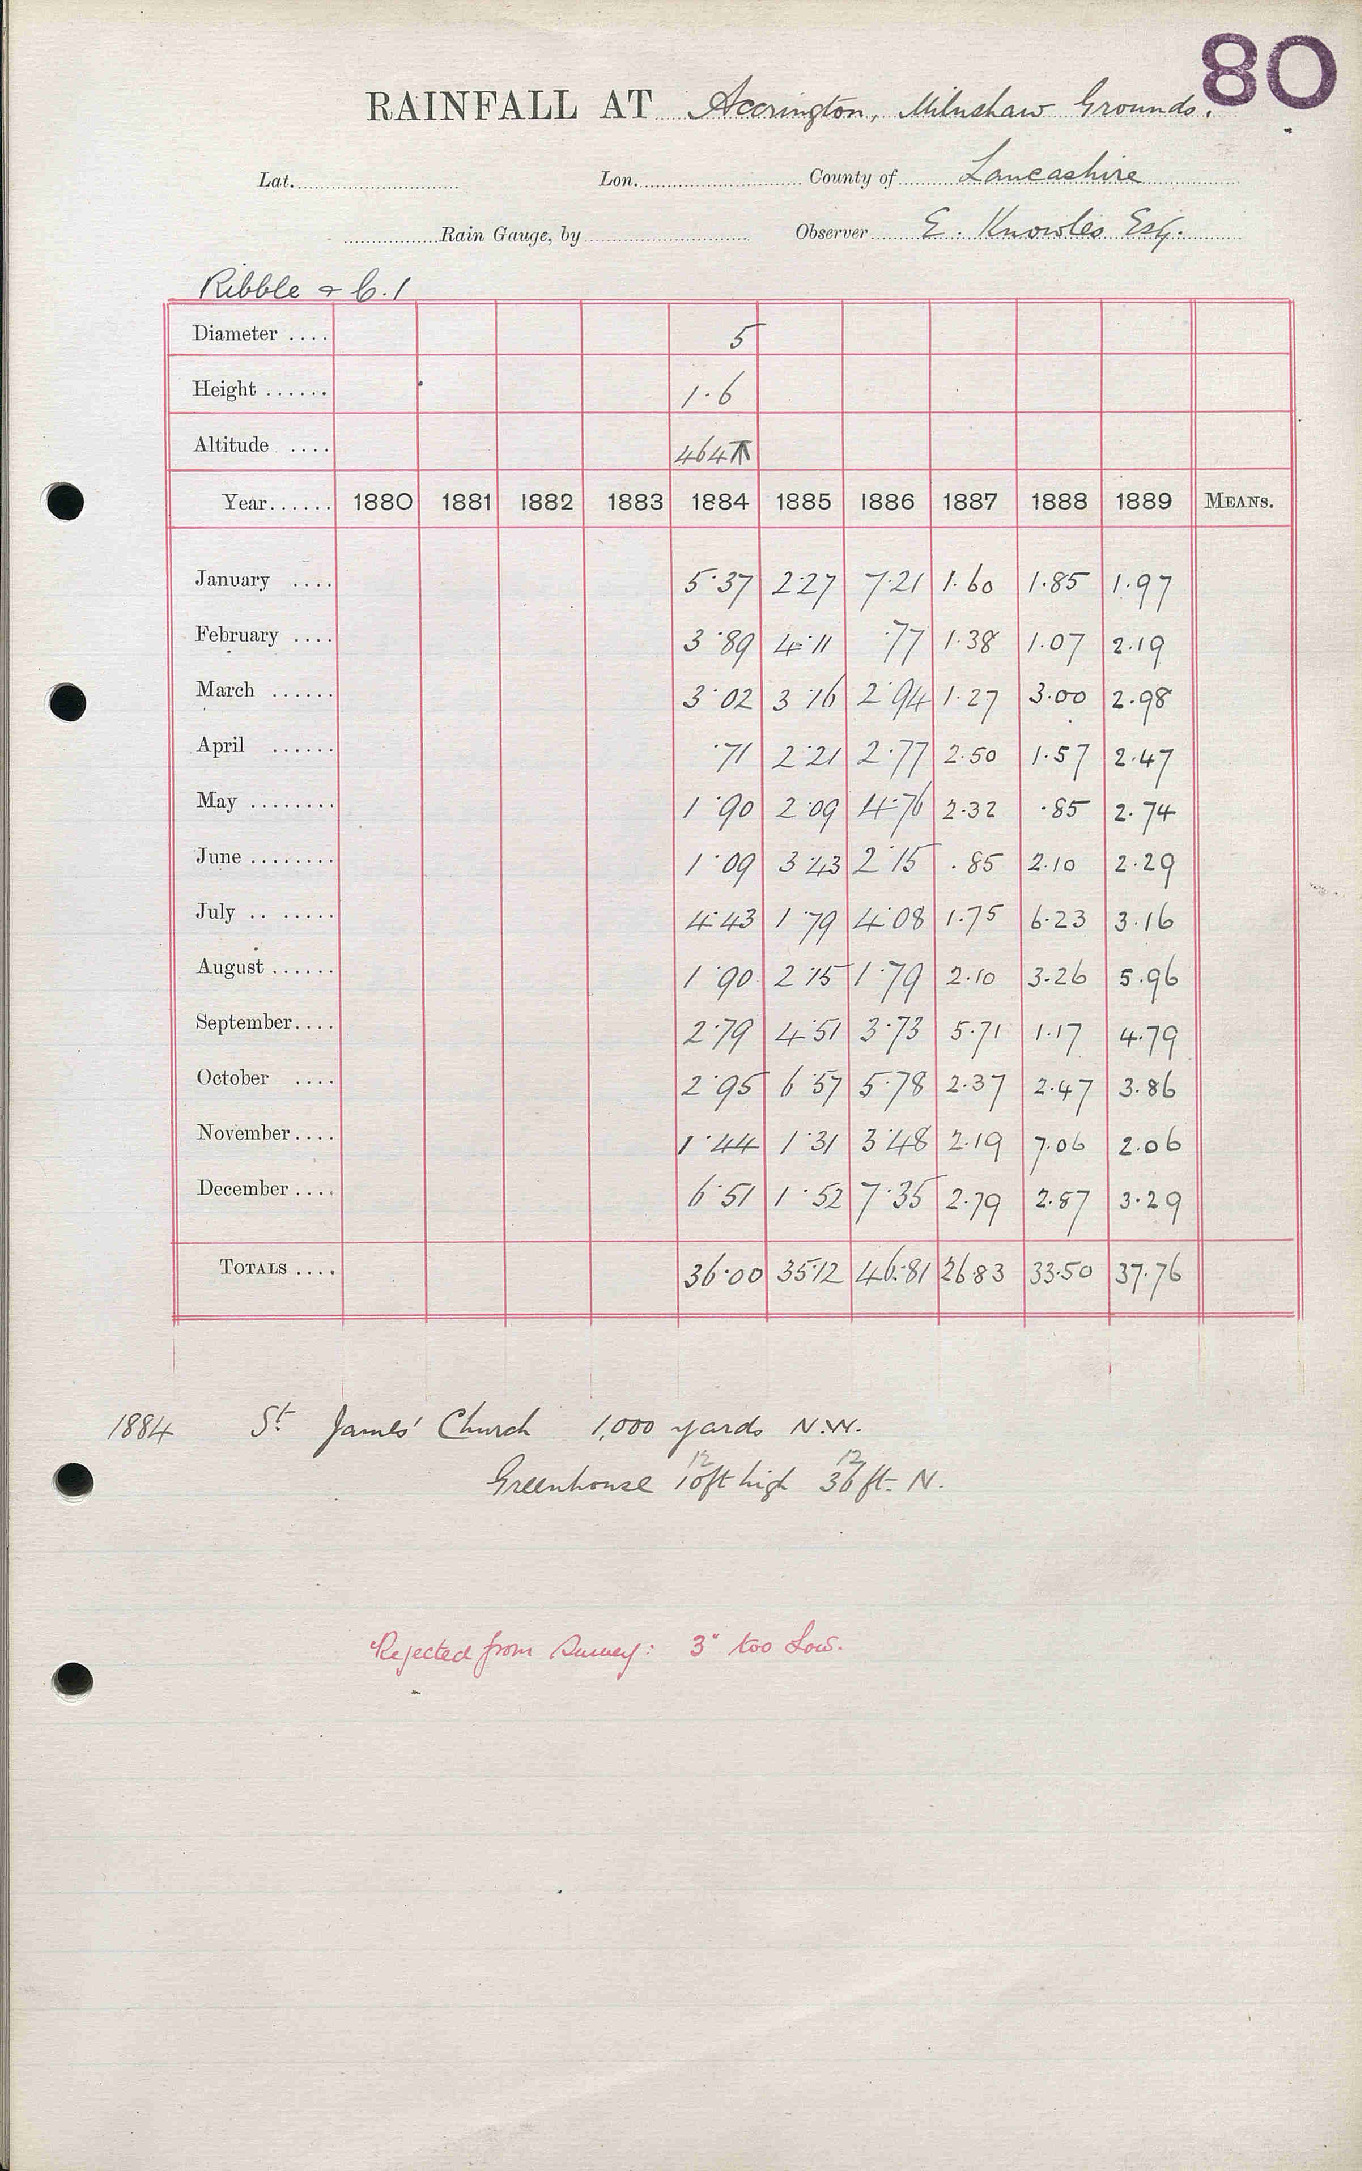 80
RAINFALL AT Accrington, Milnshaw Grounds.
Lat. Lon. County of Lancashire
Rain Gauge, by Observer E. Knowles Esq.
Ribble & C. 1
Diameter .... 5
Height ...... 1·6
Altitude .... 464
Year...... 1880 1881 1882 1883 1884 1885 1886 1887 1888 1889 MEANS.
January .... 5·37 2·27 7·21 1·60 1·85 1·97
February .... 3·89 4·11 ·77 1·38 1·07 2·19
March ...... 3·02 3·16 2·94 1·27 3·00 2·98
April ...... ·71 2·21 2·77 2·50 1·57 2·47
May ........ 1·90 2·09 4·76 2·32 ·85 2·74
June ........ 1·09 3·43 2·15 ·85 2·10 2·29
July .. ..... 4·43 1·79 4·08 1·75 6·23 3·16
August ...... 1·90 2·15 1·79 2·10 3·26 5·96
September.... 2·79 4·51 3·73 5·71 1·17 4·79
October .... 2·95 6·57 5·78 2·37 2·47 3·86
November.... 1·44 1·31 3·48 2·19 7·06 2·06
December .... 6·51 1·52 7·35 2·79 2·87 3·29
TOTALS .... 36·00 35·12 46·81 26 83 33·50 37·76
1884 St James' Church 1,000 yards N.W.
12 12
Greenhouse 10ft high 36 ft. N.
Rejected from Survey: 3" too Low.